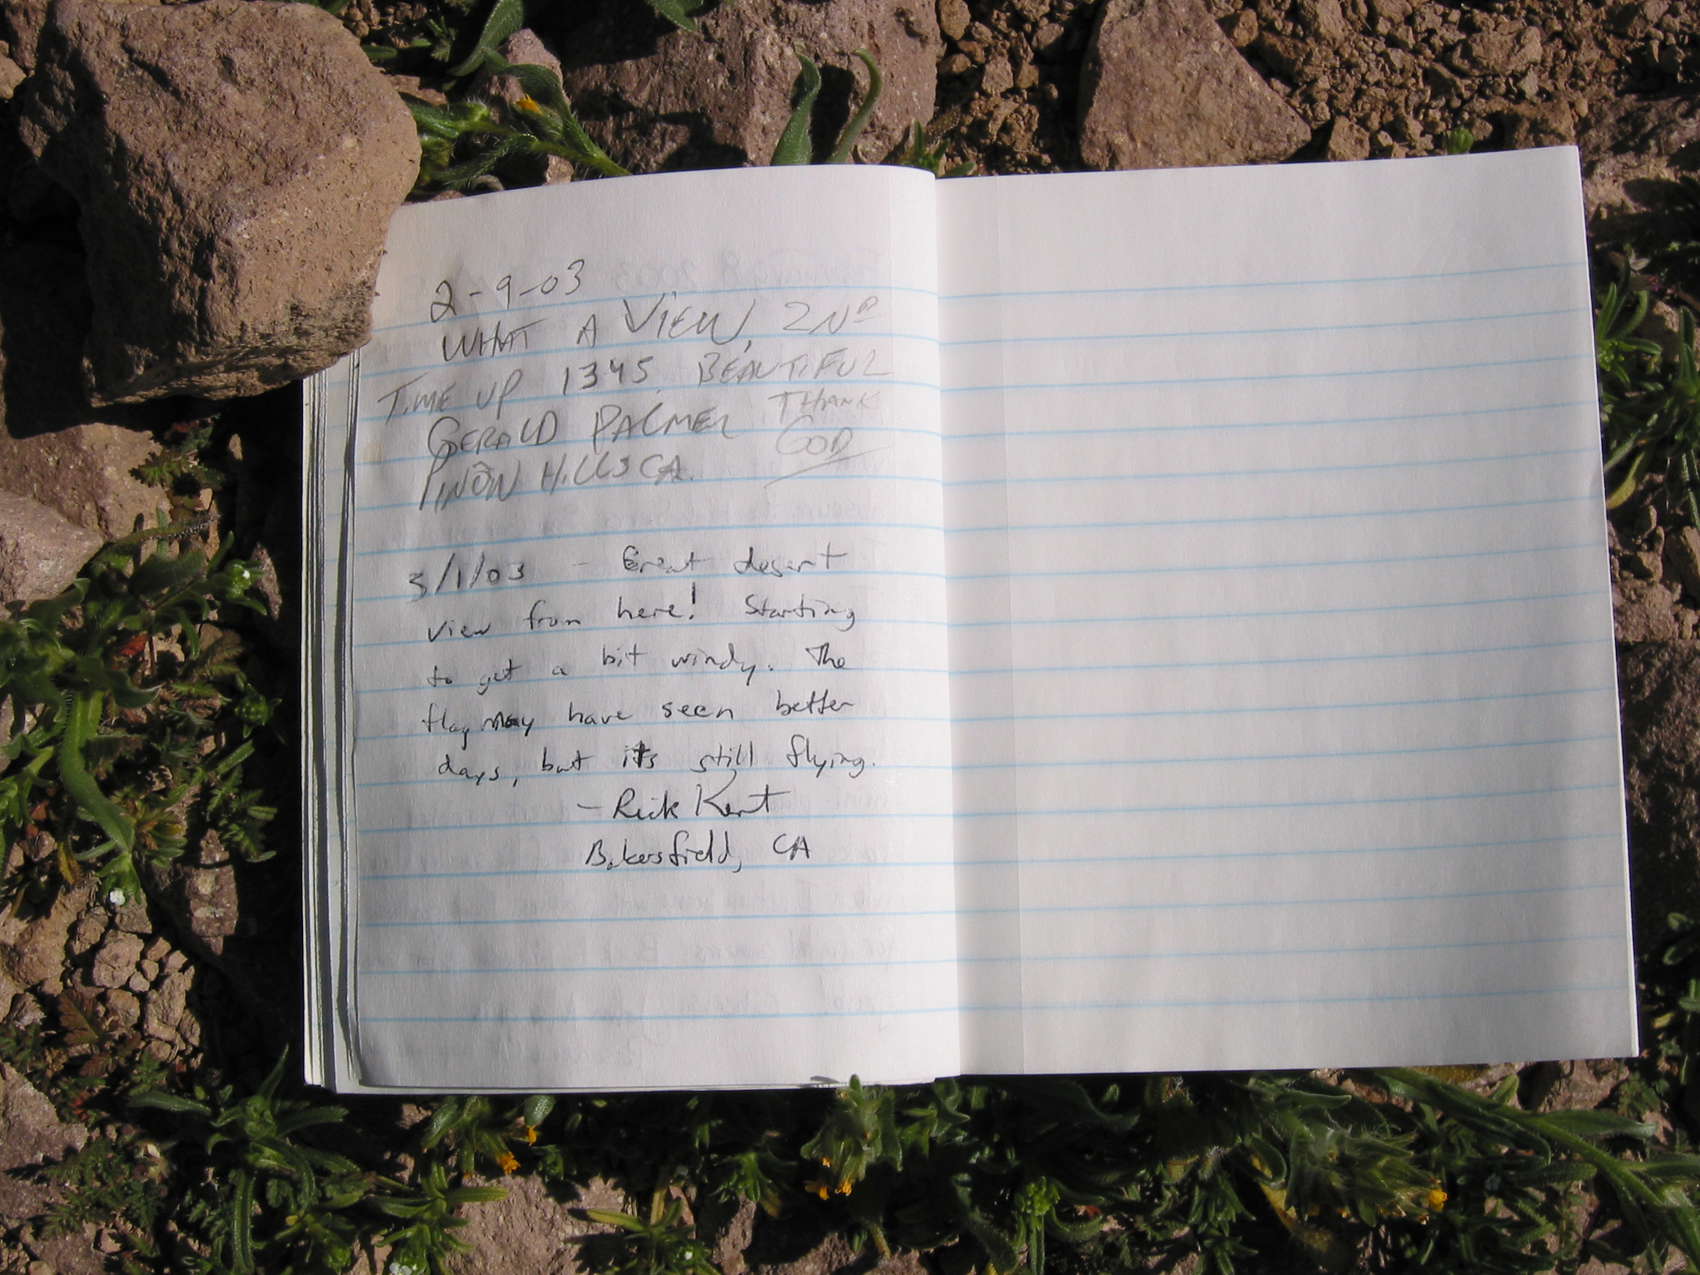 2-9-03
WHAT A VIEW, 2ND
TIME UP 1345. BEAUTIFUL
GERALD PALMER THANK
GOD
PINÕN HILLS CA.
3/1/03 - Great desert
view from here! Starting
to get a bit windy. The
flag may have seen better
days, but it's still flying.
- Rick Kent
Bakersfield, CA